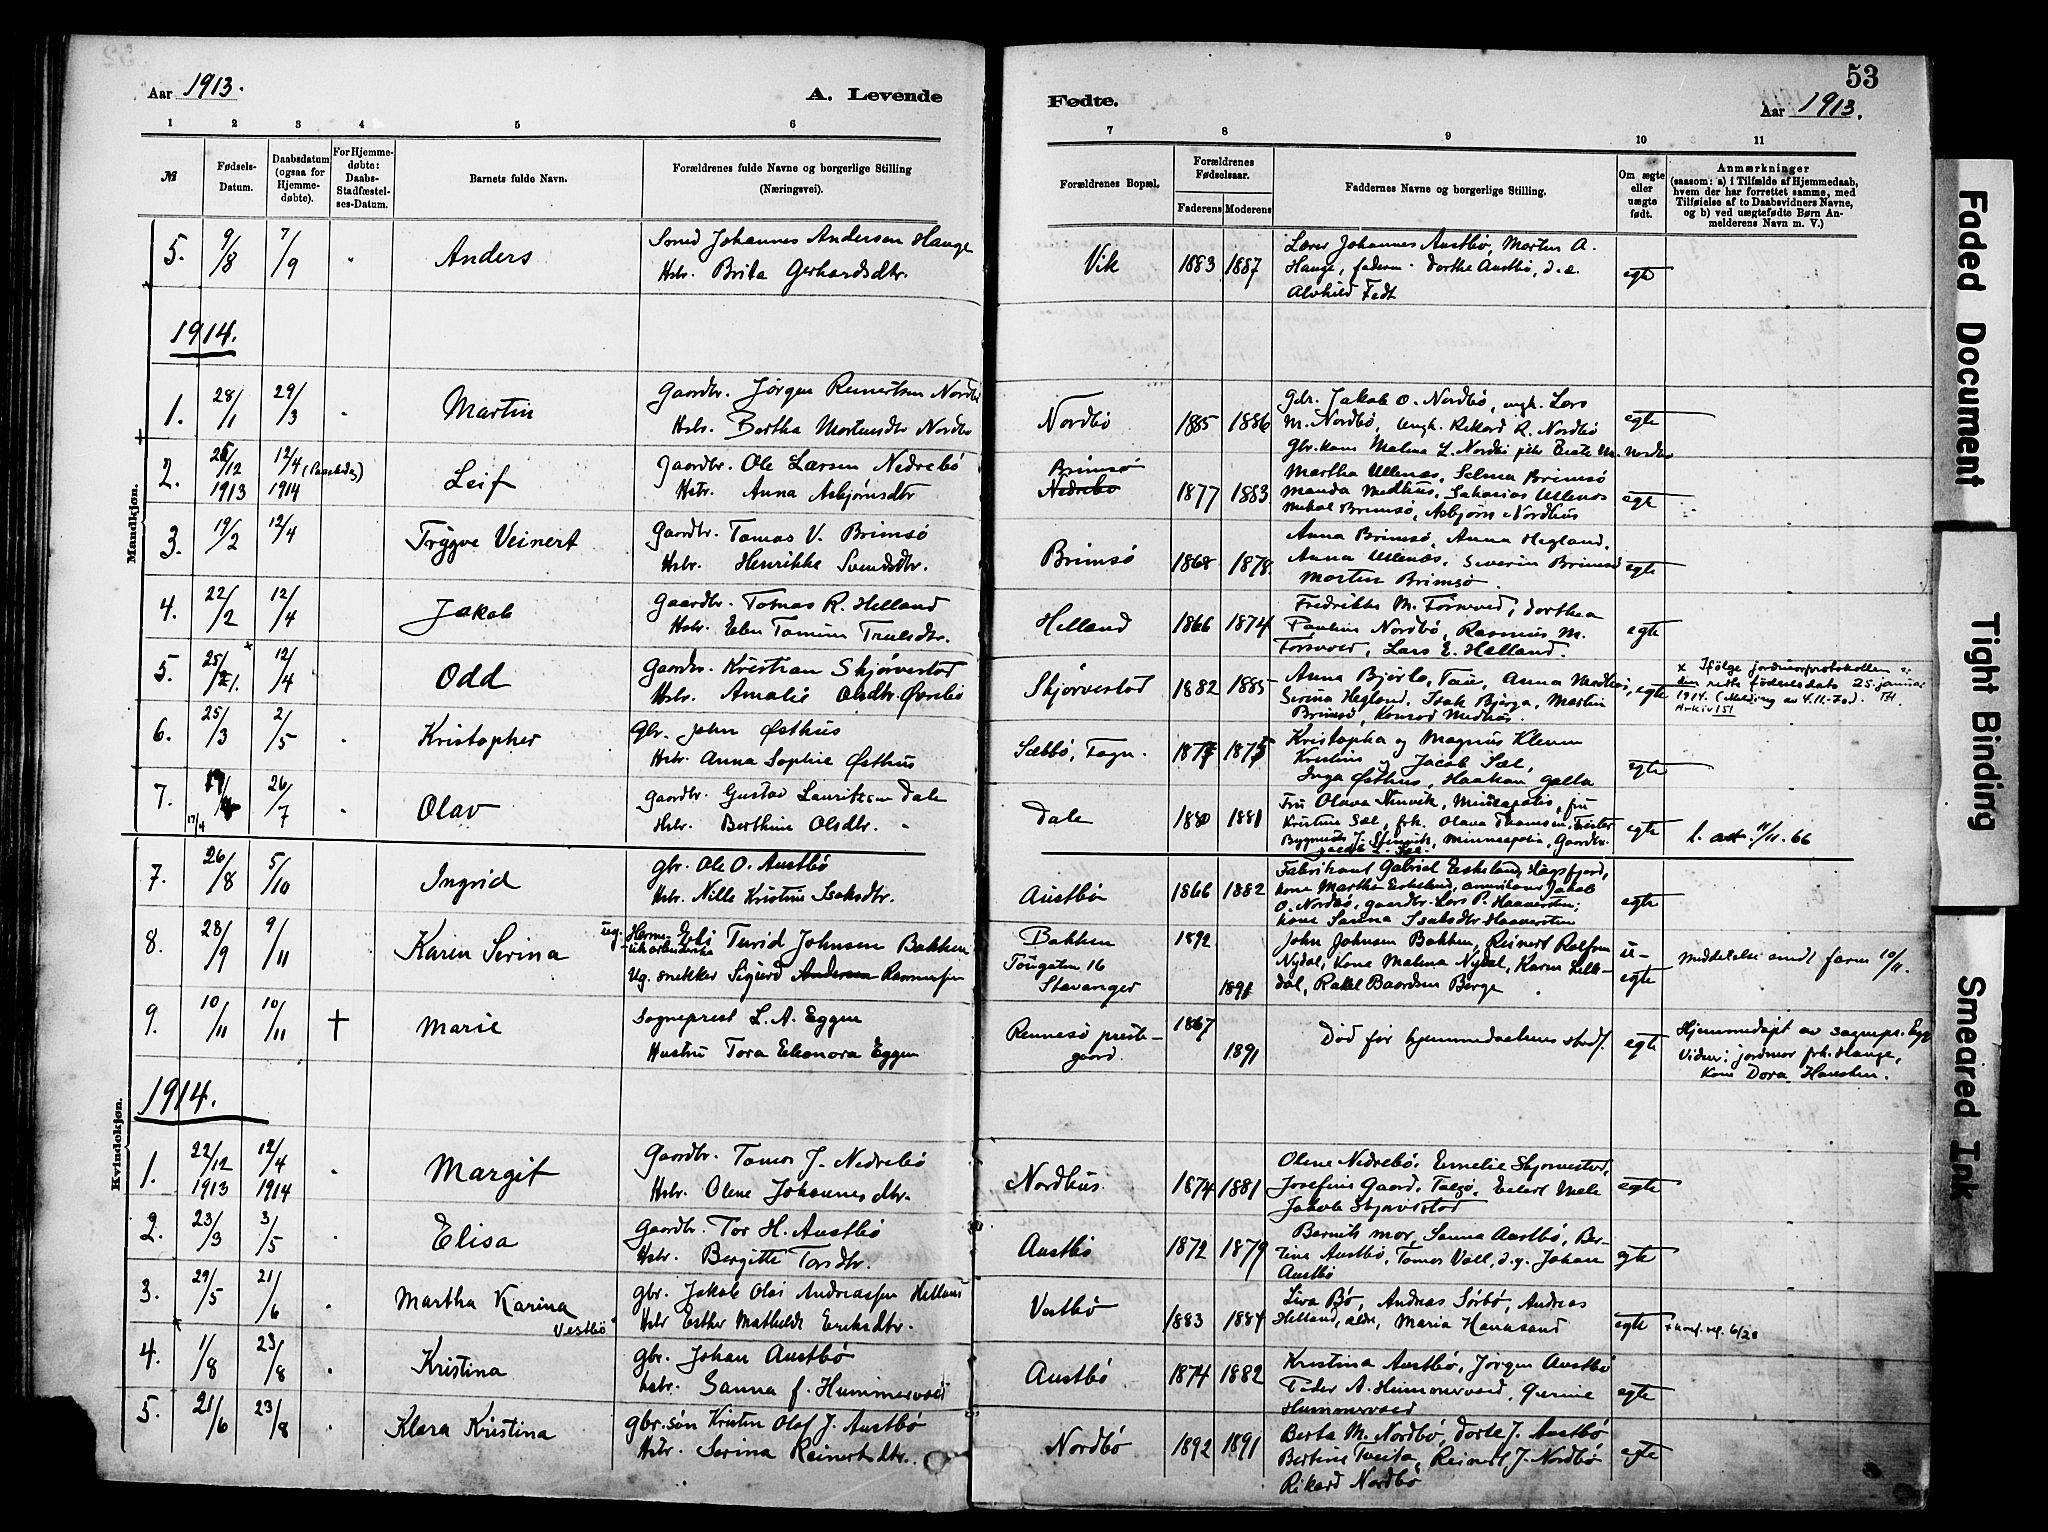 53
Aar 1913.
A. Levende
Fødte.
Aar 1913.
1 2 3 4 5 6 7 8 9 10 11
№
Fødsels-
Datum.
Daabsdatum
(ogsaa for
Hjemme-
døbte).
For Hjemme-
døbte:
Daabs-
Stadfæstel-
ses-Datum.
Barnets fulde Navn.
Forældrenes fulde Navne og borgerlige Stilling
(Næringsvei).
Forældrenes Bopæl.
Forældrenes
Fødselsaar.
Faderens Moderens
Faddernes Navne og borgerlige Stilling.
Om ægte
eller
uægte
født.
Anmærkninger
(saasom: a) i Tilfælde af Hjemmedaab,
hvem der har forrettet samme, med
Tilføielse af to Daabsvidners Navne,
og b) ved uægtefødte Børn An-
melderens Navn m. V.)
Mandkjøn.
5. 9/8 7/9 " Anders
Smed Johannes Andersen Hauge
Hstr. Brita Gerhardsdtr.
Vik 1883 1887
Lærer Johannes Austbø, Morten A.
Hauge, faderen. Dorthe Austbø, d. e.
Alvhild Fedt
egte
1914.
1. 28/1 29/3 " Martin
Gaardbr. Jørgen Reinertsen Nordbø
Hstr. Bertha Mortensdtr Nordbø
Nordbø 1885 1886
Gdr. Jakob O. Nordbø, ungk. Lars
M. Nordbø, Ungk. Rikard R. Nordbø
Gbr.kone Malena L. Nordbø
egte
2. 12 1913 12/4 1914 Leif
Gaardbr. Ole Larsen Nedrebø
Hstr. Anna Asbjørnsdtr
Brimsø
Nedrebø
1877 1883
Martha Ullenæs, Selma Brimsø
Manda Medhus, Sakarias Ullenæs
Mikal Brimsø, Asbjørn Nordhus
egte
3. 19/2 12/4 Trygve Veinert
Gaardbr. Tomas V. Brimsø
Hstr. Henrikke Svendsdtr.
Brimsø 1868 1878
Anna Brimsø, Anna Hegland,
Anna Ullenæs, Severin Brimsø
Morten Brimsø.
egte
4. 22/2 12/4 Jakob
Gaardbr. Tomas R. Helland
Hstr. Tomine Trulsdtr.
Helland 1866 1874
Fredrikke M. Forsvoid, Dorthea
Pauline Nordbø, Rasmus M.
Forsvoid, Lars E. Helland.
egte
5. 25/1. 12/4 Odd
Gaardbr. Kristian Skjørvestad
Hstr. Amalie Olsdtr Øvrebø
Skjørvestad 1882 1885
Anna Bjørlo, Tau, Anna Medhus,
Serina Hegland, Isak Bjerga, Martin
Brimsø, Konrad Medhus.
egte
x Ifølge jordmorprotokollen er
den rette fødselsdato 25. januar
1914. (Melding av 4.11.70).
Arkiv 151
6. 25/3 2/5 " Kristopher
Gbr. John Østhus
Hstr. Anna Sophie Østhus
Sæbbø, Fogn. 1877 1875
Kristopha og Magnus Klevn
Kristine og Jacob Sæl,
Inga Østhus, Haakon Galta
egte
7. 26/7 " Olav
17/4
Gaardbr. Gustav Lauritsen Dale
Hstr. Berthine Olsdtr. "
Dale 1880 1881
Fru Olava Stenvik, Mineapolis, fru
Kristine Sæl, frk. Olava Thomsen,
Bygmester J. Stenvik, Minneapolis, Gaardbr.
egte
l. att. 11/11. 66
Kvindekjøn.
7. 26/8 5/10 Ingrid
gbr. Ole O. Austbø
Hstr. Nille Kristine Isaksdtr.
Austbø 1866 1882
Fabrikant Gabriel Eskeland, Høgsfjord,
kone Marthe Eskeland, amerikaner Jakob
O. Nordbø, gaardbr. Lars P. Haaversten,
kone Sanna Isaksdtr Haaversten
egte
8. 28/9 9/11 Karen Serina
ug. Turid Johnsen Bakken
Ug. snekker Sigurd Andersen Rasmussen
Bakken
Tougaten 16
Stavanger
1892
1891
John Johnsen Bakken, Reinert Rolfsen
Nydal, Kone Malena Nydal, Karen Lille-
dal, Rakel Baardsen Berge
u-
egte
Meddelelse sendt faren 10/11.
9. 10/11 10/11 † Marie
Sogneprest L. A. Eggen
Hustru Tora Eleonora Eggen
Rennesø preste-
gaard.
1867
1891
Død før hjemmedaabens stadf.
egte
Hjemmedøpt av sognepr. Egg
Vidner: jordmor frk. Hauge,
Kone Dora Hansten.
1914.
1. 22/12 1913 12/4 1914 " Margit
Gaardbr. Tomas J. Nedrebø
Hstr. Olene Johannesdtr.
Nordhus. 1874 1881
Olene Nedrebø, Emelie Skjørvestad,
Josefine Gaard, Talgø, Eilert Mele
Jakob Skjørvestad
egte
2. 23/3 3/5 " Elisa
Gaardbr. Tor H. Austbø
Hstr. Bergitte Torsdtr.
Austbø 1872 1879
Barnets mor, Sanna Austbø, Ber-
tine Austbø, Tomas Voll, d.y. Johan
Austbø
egte
3. 29/5 21/6 " Martha Karina
Vestbø
gbr. Jakob Olai Andreassen Helland
Hstr Esther Mathilde Eriksdtr.
Vestbø 1883 1884
Liva Bø, Andreas Sørbø, Andreas
Helland, aldre, Maria Hanasand
egte
4. 1/8 23/8 " Kristina
gbr. Johan Austbø
hstr. Sanna f. Hummervoid
Austbø 1874 1882
Kristina Austbø, Jørgen Austbø
Peder A. Hummervoid, Gurine
Hummervoid
egte
5. 21/6 23/8 " Klara Kristina
gbr.søn Kristen Olaf J. Austbø
Hstr. Serina Reinertsdtr.
Nordbø 1892 1891
Berta M. Nordbø, Dorte J. Austbø
Bertine Tveita, Reinert J. Nordbø
Rikard Nordbø
egte
Faded Document
Tight Binding
Smeared Ink